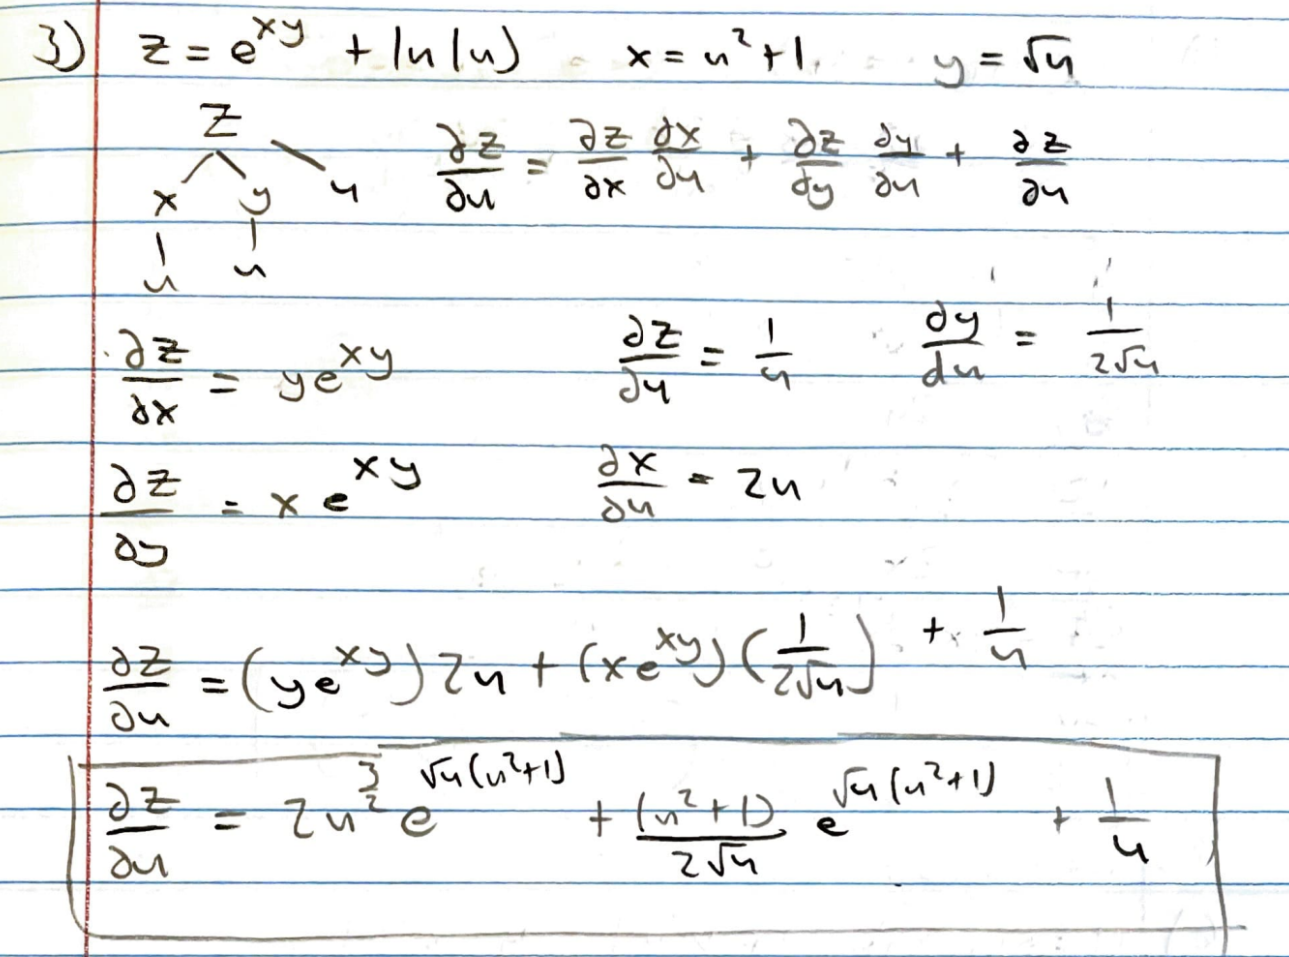 3) z = e^{xy} + ln(u) x = u²+1, y = √u
z
∂z/∂u = ∂z/∂x ∂x/∂u + ∂z/∂y ∂y/∂u + ∂z/∂u
x y u
u u
∂z/∂x = ye^{xy} ∂z/∂u = 1/u ∂y/∂u = 1/(2√u)
∂z/∂y = xe^{xy} ∂x/∂u = 2u
∂z/∂u = (ye^{xy})2u + (xe^{xy})(1/(2√u)) + 1/u
∂z/∂u = 2u^{3/2} e^{√u(u²+1)} + (u²+1)/(2√u) e^{√u(u²+1)} + 1/u